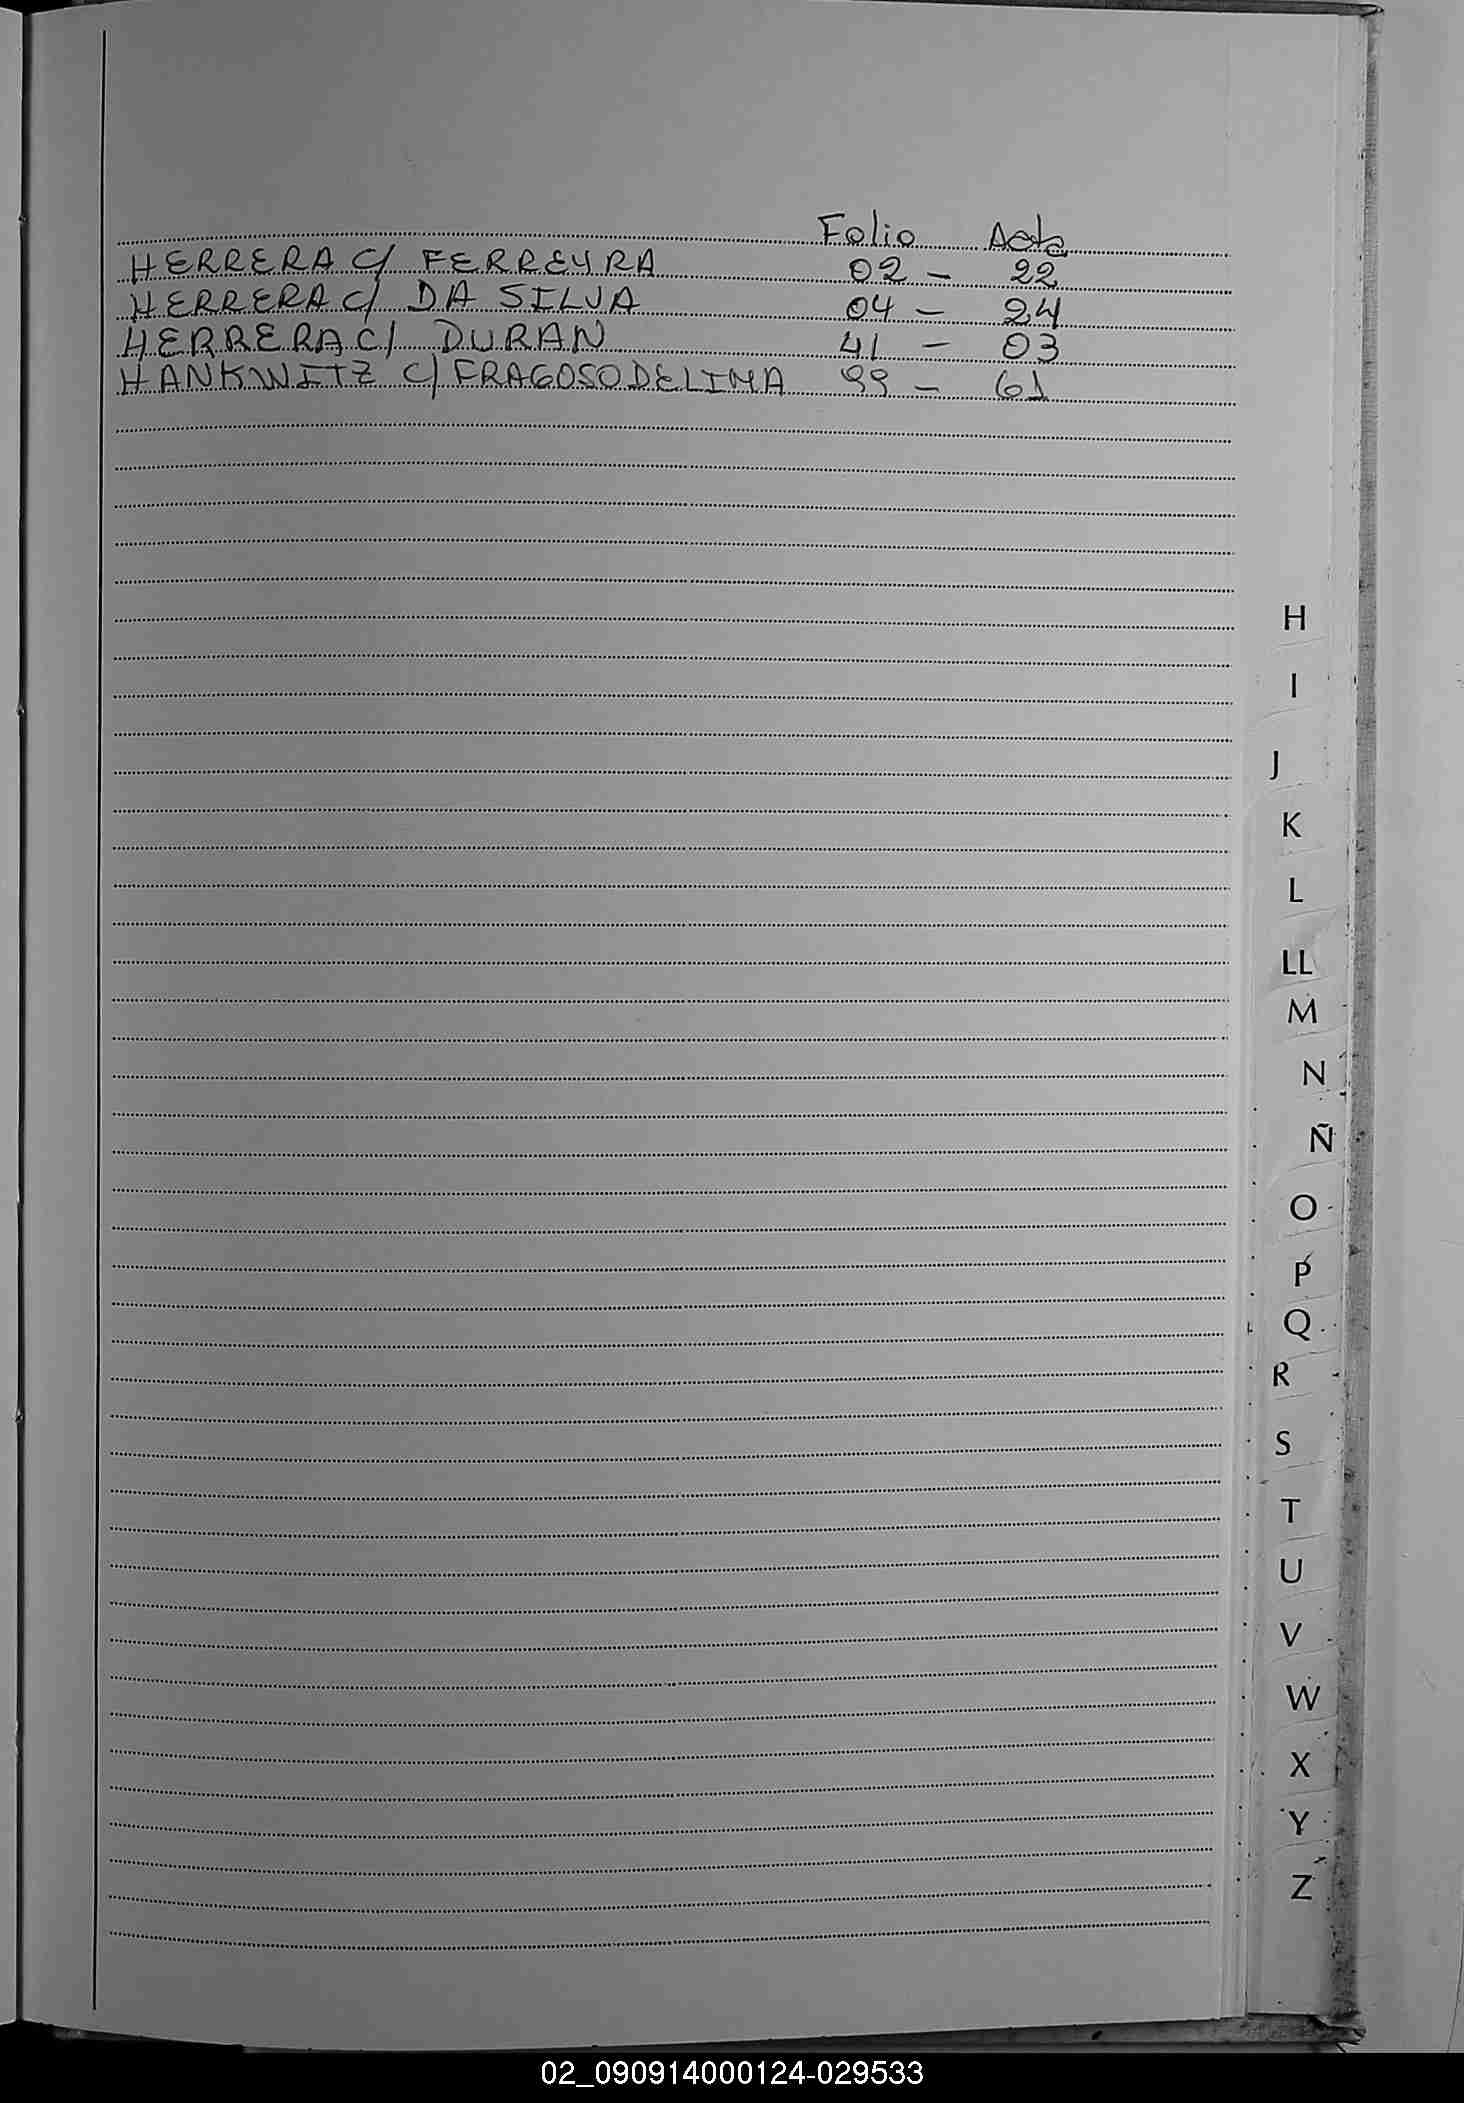 Folio Acta
HERRERA C/ FERREYRA 02 - 22
HERRERA C/ DA SILVA 04 - 24
HERRERA C/ DURAN 41 - 03
HANKWITZ C/ FRAGOSO DE LIMA 99 - 61
H
I
J
K
L
LL
M
N
Ñ
O
P
Q
R
S
T
U
V
W
X
Y
Z
02_090914000124-029533